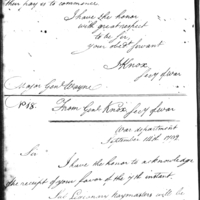 their pay is to commence
I have the honor
with great respect
to be Sir,
your obedt servant
H Knox
Secy of war
Major Genl Wayne
No 18. From Genl Knox Secy of war
War department
September 14th 1792
Sir
I have the honor to acknowledge
the receipt of your favor of the 7th instant.
Paymasters will be